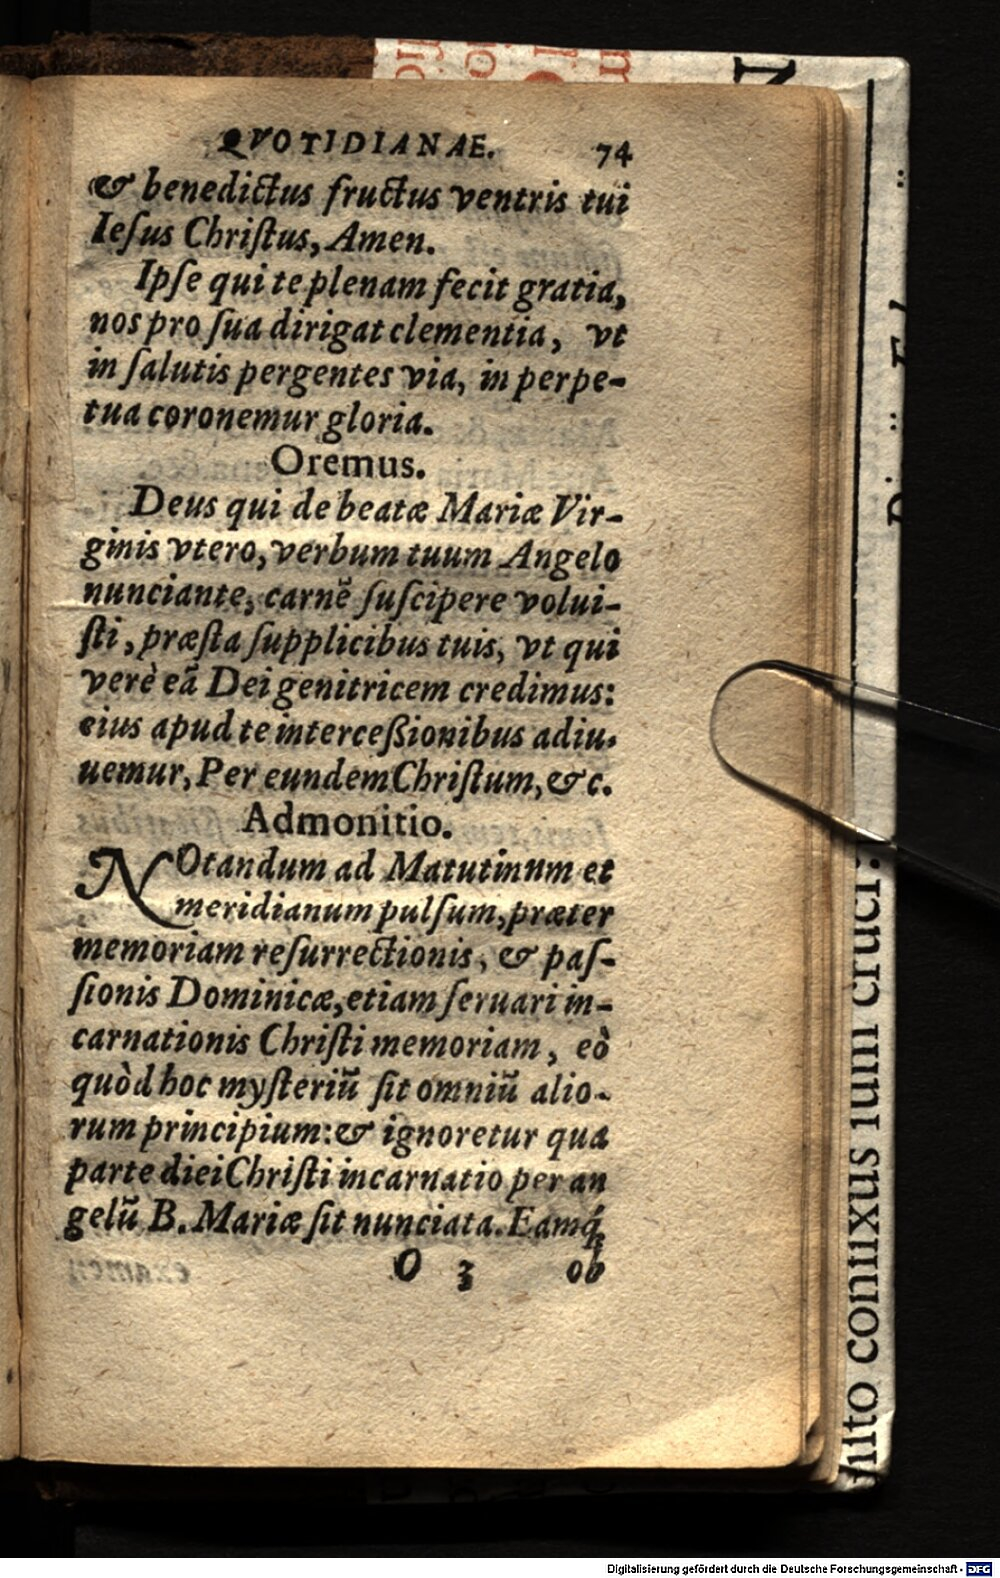 QVOTIDIANAE. 74
& benedictus fructus ventris tui
Ieſus Chriſtus, Amen.
Ipſe qui te plenam fecit gratia,
nos pro ſua dirigat clementia, vt
in ſalutis pergentes via, in perpe-
tua coronemur gloria.
Oremus.
Deus qui de beatæ Mariæ Vir-
ginis vtero, verbum tuum Angelo
nunciante, carnē ſuſcipere volui-
ſti, præſta ſupplicibus tuis, vt qui
verè eā Dei genitricem credimus:
eius apud te interceßionibus adiu-
uemur, Per eundem Chriſtum, &c.
Admonitio.
NOtandum ad Matutinum et
meridianum pulſum, præter
memoriam reſurrectionis, & paſ-
ſionis Dominicæ, etiam ſeruari in-
carnationis Chriſti memoriam, eò
quòd hoc myſteriū ſit omniū alio-
rum principium: & ignoretur qua
parte diei Chriſti incarnatio per an
gelū B. Mariæ ſit nunciata. Eamq́;
O 3 ob
conixus
cruci
Digitalisierung gefördert durch die Deutsche Forschungsgemeinschaft - DFG